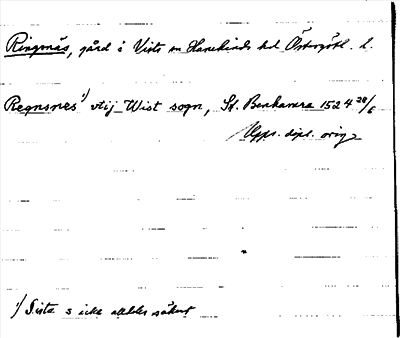 Ringnäs, gård i Vists sn Hanekinds hd Östergötl. l.
Regnsnes¹⁾ vtij Wist sogn, St. Benhamra 1524 28/6
Upps. dipl. orig
¹⁾ Sista s icke alldeles säkert